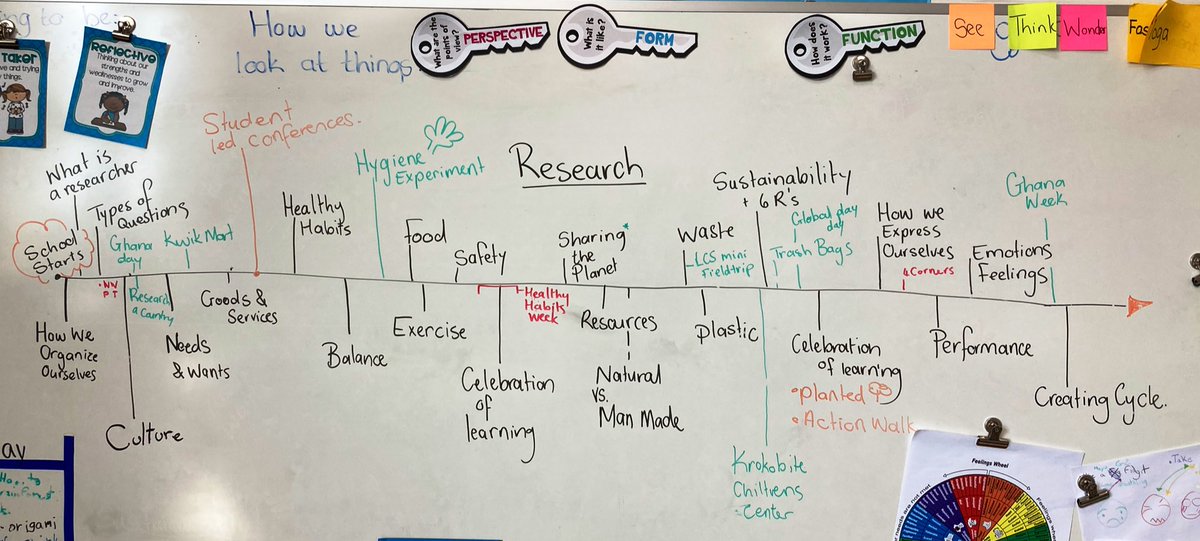 ng to be:
How we
look at things.
What are the
points of
view?
PERSPECTIVE
What is
it like?
FORM
How does
it work?
FUNCTION
See
Think
Wonder
TAKER
ve and trying
things.
REFLECTIVE
Thinking about our
strengths and
weaknesses to grow
and improve.
Student
led conferences.
Hygiene
Experiment
Research
What is
a researcher
School
Starts
Types of
Questions
Ghana
day
Kwik Mart
Healthy
Habits
Food
Safety
Sharing*
the
Planet
Waste
LCS mini
fieldtrip
Sustainability
+ 6 R's
Global day
day
Trash Bags
How we
Express
Ourselves
4 Corners
Emotions
Feelings
Ghana
Week
NW
PT
Research
a Country
How We
Organize
Ourselves
Culture
Needs
& Wants
Goods &
Services
Balance
Exercise
Celebration
of
learning
Healthy
Habits
Week
Resources
Natural
vs.
Man Made
Plastic
Krokobite
Chiltrens
Center
Celebration
of learning
• Planted
• Action Walk
Performance
Creating Cycle.
Feelings Wheel
• Take
av
- origami